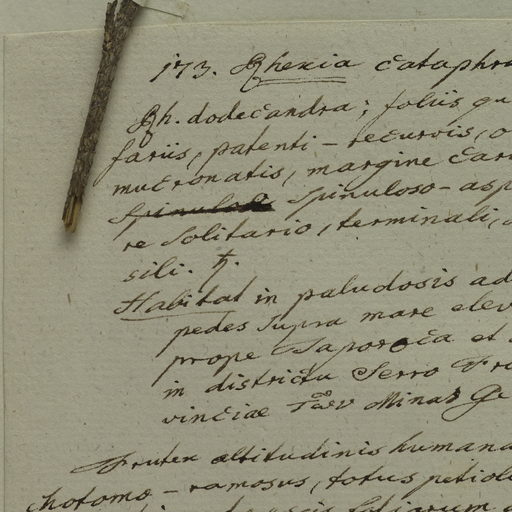 173. Rhexia cataphra
Rh. dodecandra; foliis qu
fariis, patenti-recurvis, o
mucronatis, margine cari
spinuloso-asp
re solitario, terminali,
sili. ♄.
Habitat in paludosis ad
pedes supra mare elev
prope Taporoca et
in districtu Serro Fri
vinciae Minas Ge
Frutex altitudinis humana
chotomo-ramosus, totus petiol
foliarum